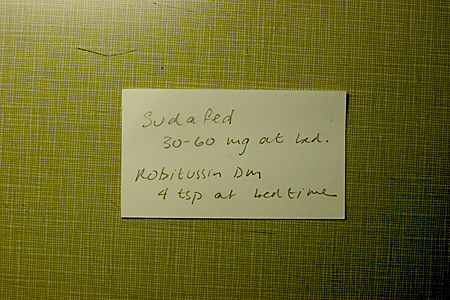 Sudafed
30-60 mg at bed.
Robitussin Dm
4 tsp at bedtime